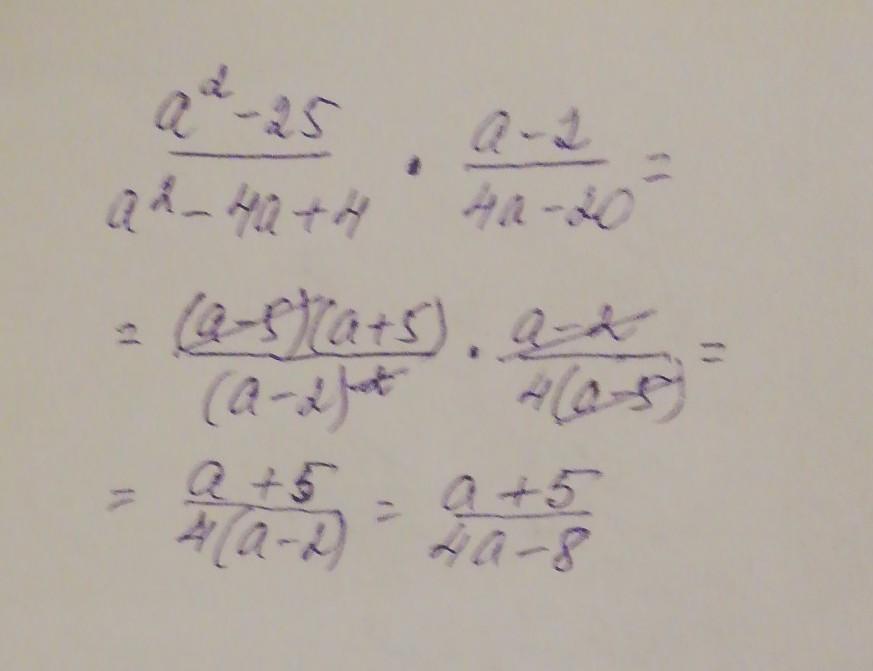 a² - 25 / a² - 4a + 4 · a - 2 / 4a - 20 =
= (a - 5)(a + 5) / (a - 2)² · a - 2 / 4(a - 5) =
= a + 5 / 4(a - 2) = a + 5 / 4a - 8